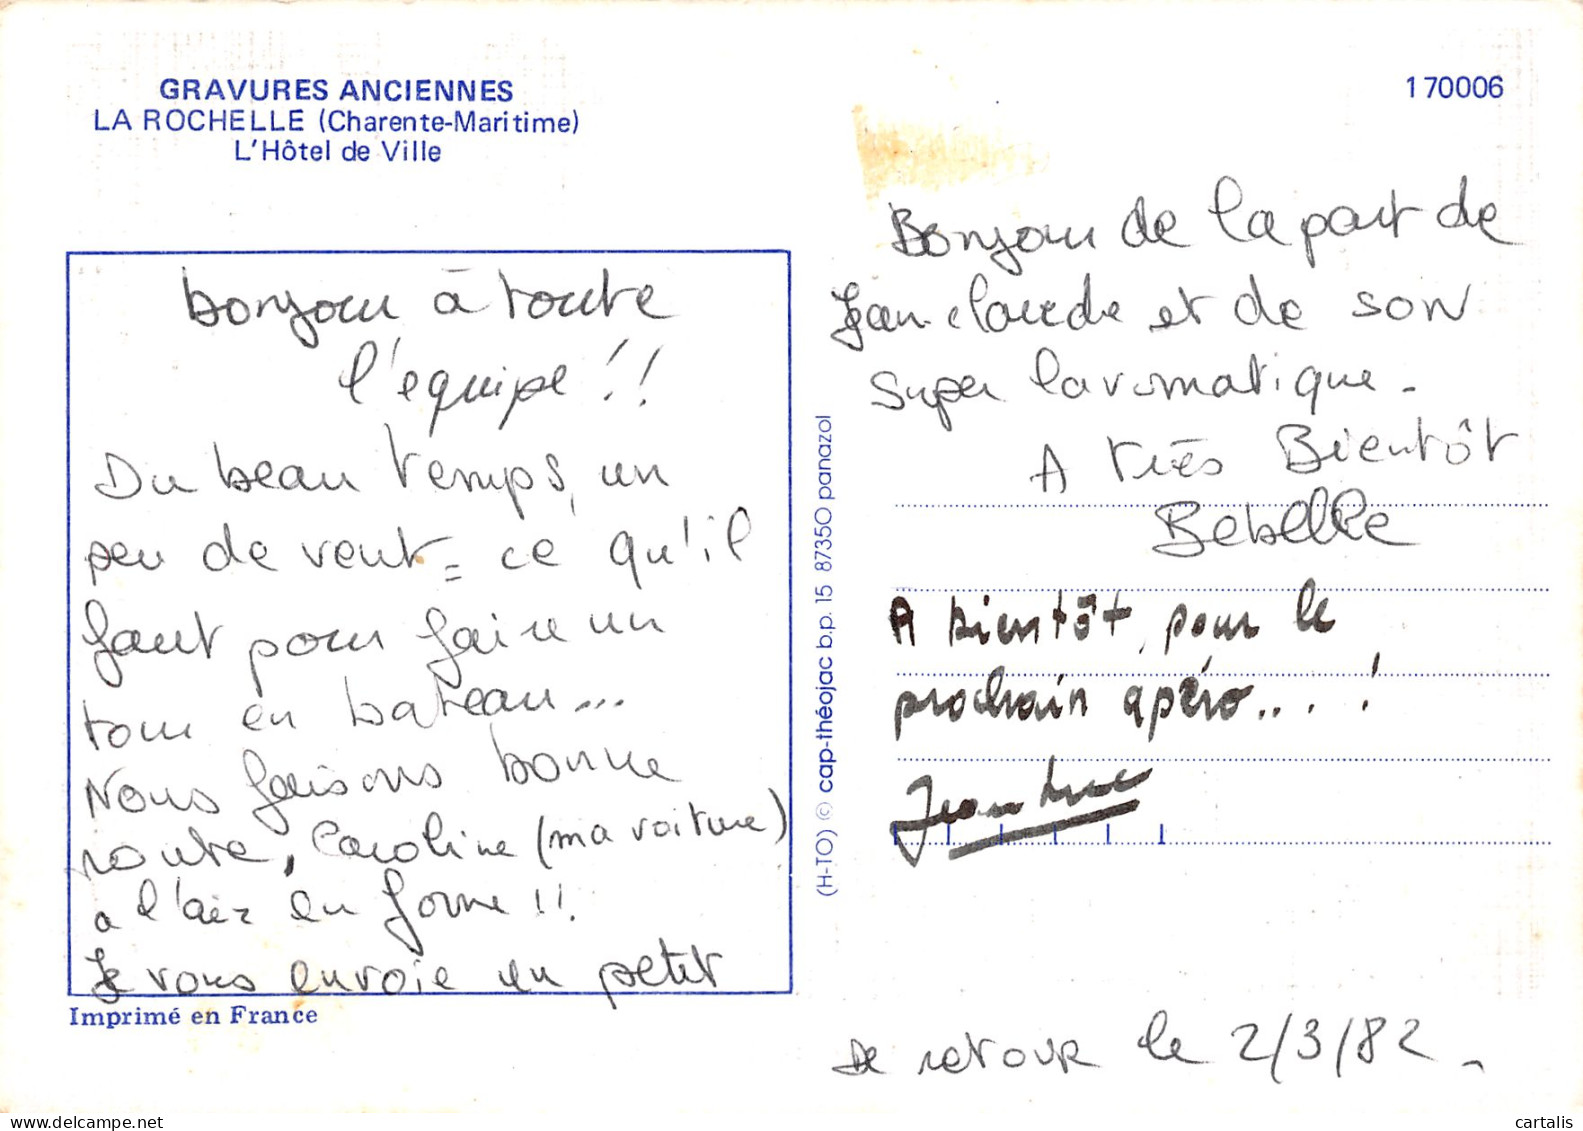 GRAVURES ANCIENNES
LA ROCHELLE (Charente-Maritime)
L'Hôtel de Ville
170006
bonjour à toute
l'equipe !!
Du beau temps, un
peu de vent = ce qu'il
faut pour faire un
tour en bateau...
Nous faisons bonne
route, Caroline (ma voiture)
a l'air en forme !!
Je vous envoie un petit
Imprimé en France
(H-TO) © cap-théojac b.p. 15 87350 panazol
Bonjour de la part de
Jean-claude et de son
super lavomatique.
A très Bientôt
Bebelle
A bientôt, pour le
prochain apéro.... !
Jean Luc
De retour le 2/3/82.
cartalis